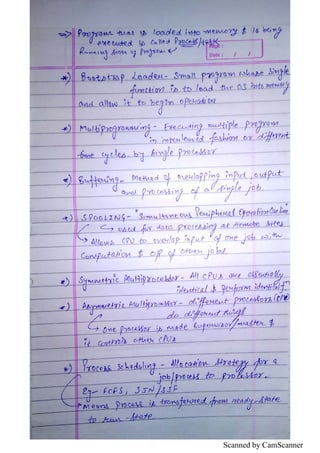 => Program that is loaded into memory & is being
executed is called Process/task
Running state of Program
Page:
Date: / /
*) Bootstrap Loader- Small program whose Single
function is to load the OS into memory
and allow it to begin operation
*) Multiprogramming - Executing multiple program
in interleaved fashion or different
time cycles by single processor
*) Buffering- Method of overlapping input, output
and processing of a single job.
*) SPOOLING- "Simultaneous Peripheral Operation Online"
used for data processing at remote sites
Allows CPU to overlap input of one job with
computation & o/p of other jobs
*) Symmetric Multiprocessor - All CPUs are essentially
identical & perform identically
*) Asymmetric Multiprocessor- different processors (CPU)
do different things
One processor is made Supervisor/master &
it controls other CPUs
*) Process Scheduling - Allocation Strategy for a
job/process to processor.
Eg- FCFS, SJN/SJF
means process is transferred from ready-state
to run-state
Scanned by CamScanner